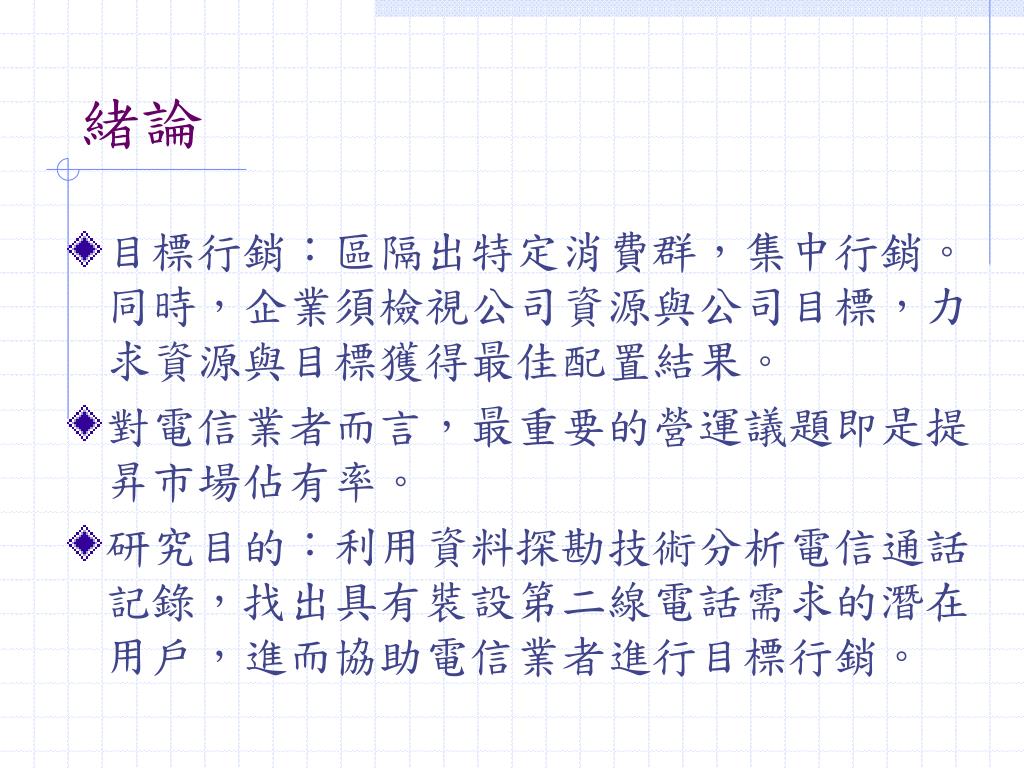 緒論
目標行銷：區隔出特定消費群，集中行銷。
同時，企業須檢視公司資源與公司目標，力
求資源與目標獲得最佳配置結果。
對電信業者而言，最重要的營運議題即是提
昇市場佔有率。
研究目的：利用資料探勘技術分析電信通話
記錄，找出具有裝設第二線電話需求的潛在
用戶，進而協助電信業者進行目標行銷。